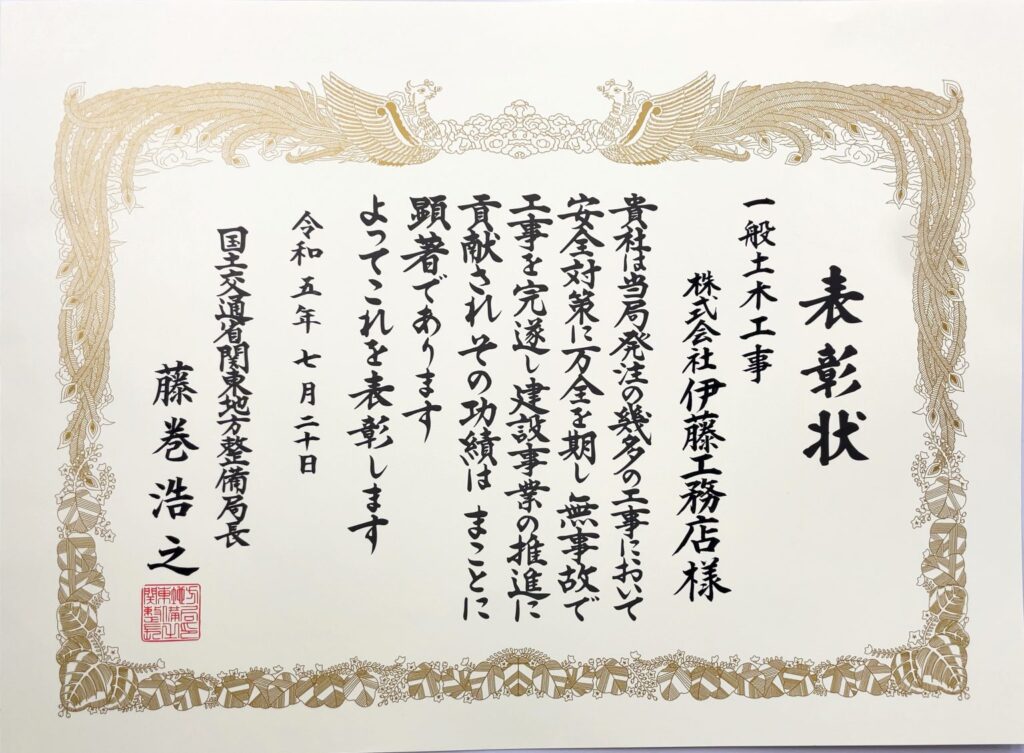 表彰状
一般土木工事
株式会社伊藤工務店様
貴社は当局発注の幾多の工事において
安全対策に万全を期し 無事故で
工事を完遂し建設事業の推進に
貢献され その功績は まことに
顕著であります
よってこれを表彰します
令和五年 七月二十日
国土交通省関東地方整備局長
藤巻浩之